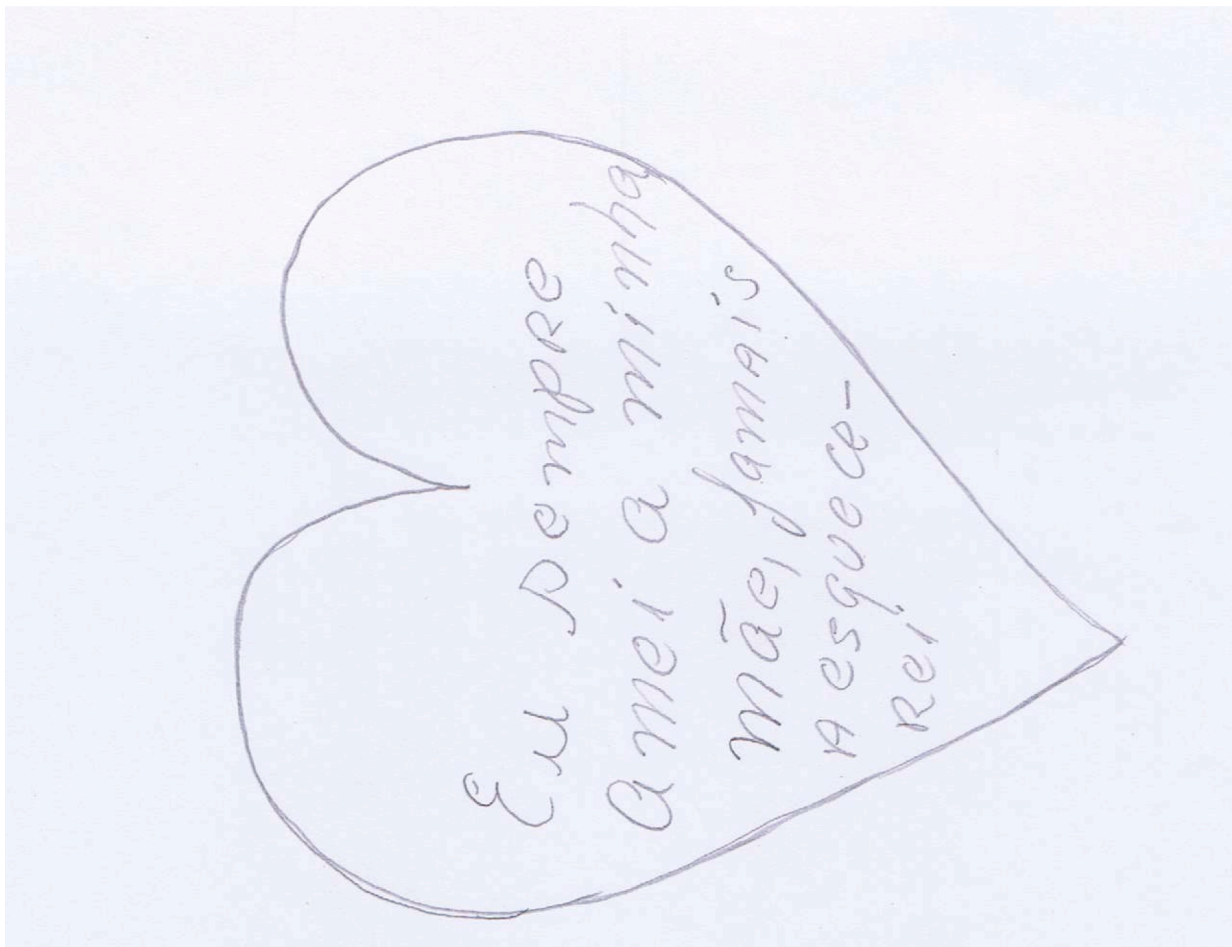 Eu sempre
amei a minha
mãe, jamais
A esquece-
Rei